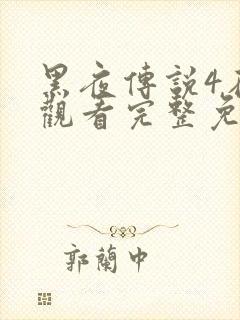 黑夜傳説4
觀看完整免
郭蘭中